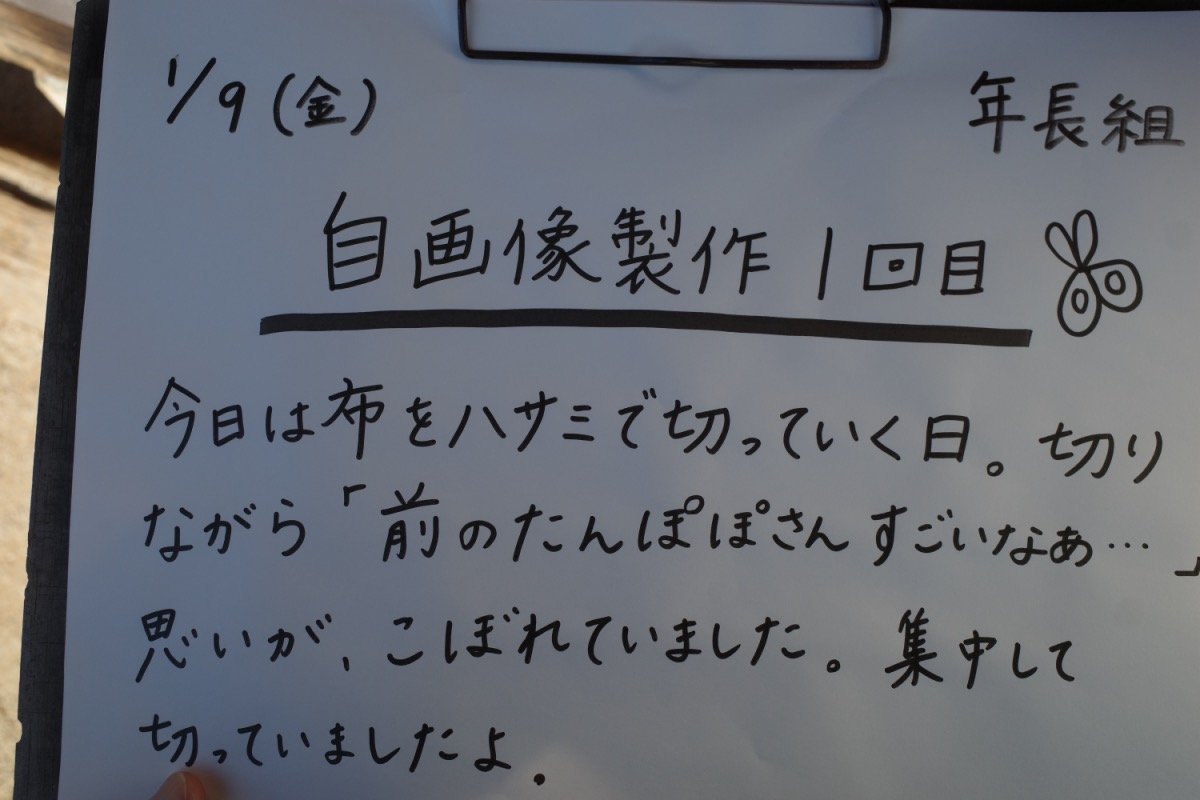 1/9(金) 年長組
自画像製作1回目
今日は布をハサミで切っていく日。切り
ながら「前のたんぽぽさんすごいなぁ…」
思いが、こぼれていました。集中して
切っていましたよ.